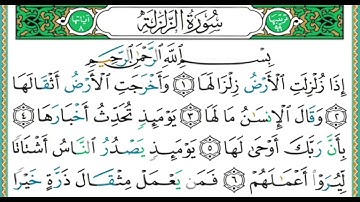 سُورَةُ الزَّلْزَلَةِ
بِسْمِ ٱللَّهِ ٱلرَّحْمَٰنِ ٱلرَّحِيمِ
إِذَا زُلْزِلَتِ ٱلْأَرْضُ زِلْزَالَهَا ١ وَأَخْرَجَتِ ٱلْأَرْضُ أَثْقَالَهَا
٢ وَقَالَ ٱلْإِنسَٰنُ مَا لَهَا ٣ يَوْمَئِذٍ تُحَدِّثُ أَخْبَارَهَا ٤
بِأَنَّ رَبَّكَ أَوْحَىٰ لَهَا ٥ يَوْمَئِذٍ يَصْدُرُ ٱلنَّاسُ أَشْتَاتًا
لِّيُرَوْا۟ أَعْمَٰلَهُمْ ٦ فَمَن يَعْمَلْ مِثْقَالَ ذَرَّةٍ خَيْرًا